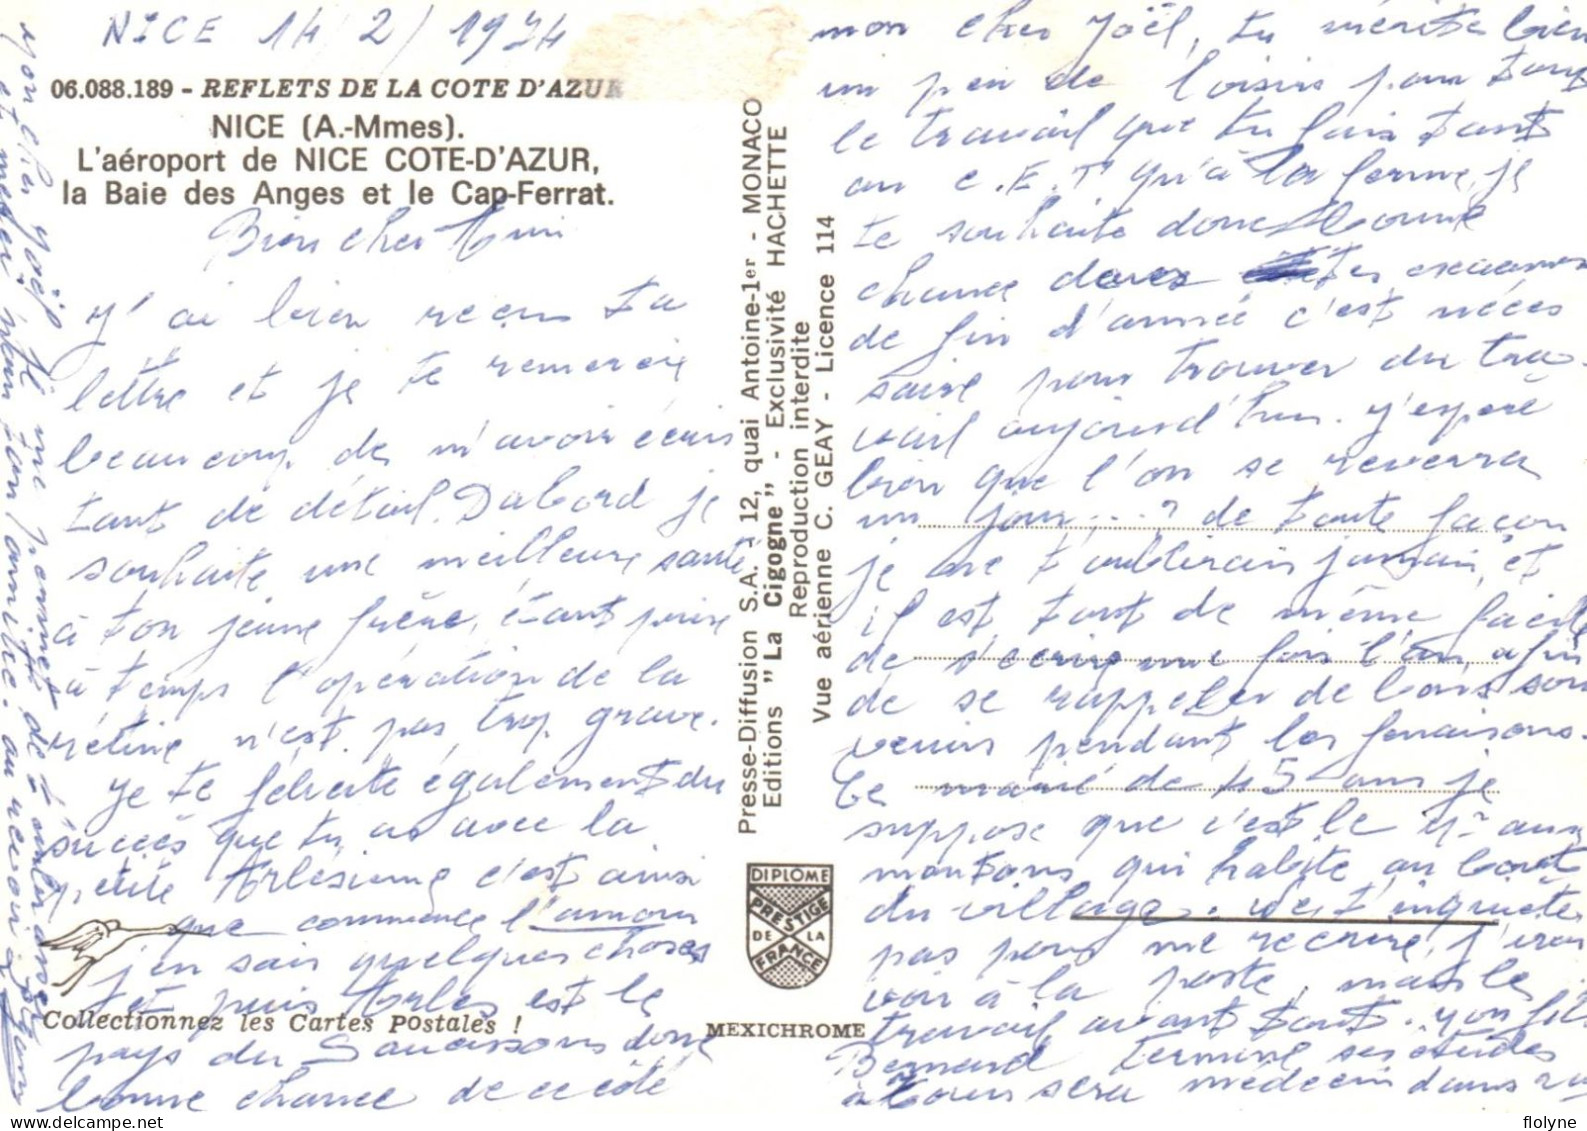 NICE 14/2/1974
06.088.189 - REFLETS DE LA COTE D'AZUR
NICE (A.-Mmes).
L'aéroport de NICE COTE-D'AZUR,
la Baie des Anges et le Cap-Ferrat.
Bien cher Ami
J'ai bien reçu ta
lettre et je te remercie
beaucoup de m'avoir écris
tant de détail. Dabord je
souhaite une meilleure santé
à ton jeune frère, étant prise
à temps l'opération de la
rétine n'est pas trop grave.
Je te félicite également du
succès que tu as avec la
petite Arlésienne c'est ainsi
que commence l'amour
j'en sais quelques choses
et puis Arles est le
Collectionnez les Cartes Postales !
pays du Saucissons donc
bonne chance de ce côté
mon cher Joël, tu mérite bien
un peu de loisirs pour tous
le travail que tu fais tant
au C.E.T qu'à la ferme, je
te souhaite donc bonne
chance dans tes examens
de fin d'année c'est néces
saire pour trouver du tra-
vail aujourd'hui. J'espère
bien que l'on se reverra
un jour....? de toute façon
je ne t'oublirais jamais, et
il est tout de même facile
de s'écrire une fois l'an, afin
de se rappeler de bons sou
venirs pendant les fenaisons.
Ce marié de 45 ans je
suppose que c'est le Mr aux
moutons qui habite au bout
du village. ne t'inquiète
pas pour me recevoir, j'irai
voir à la poste, mais le
travail avant tout. Mon fils
Bernard termine ses études
à Tours sera médecin dans
Mon cher Joël je me permet de t'embrasser
et merci pour ton amitié. au revoir
Presse-Diffusion S.A. - 12, quai Antoine-1er - MONACO
Editions "La Cigogne" - Exclusivité HACHETTE
Reproduction interdite
Vue aérienne C. GEAY - Licence 114
DIPLOME
PRESTIGE
DE LA
FRANCE
MEXICHROME